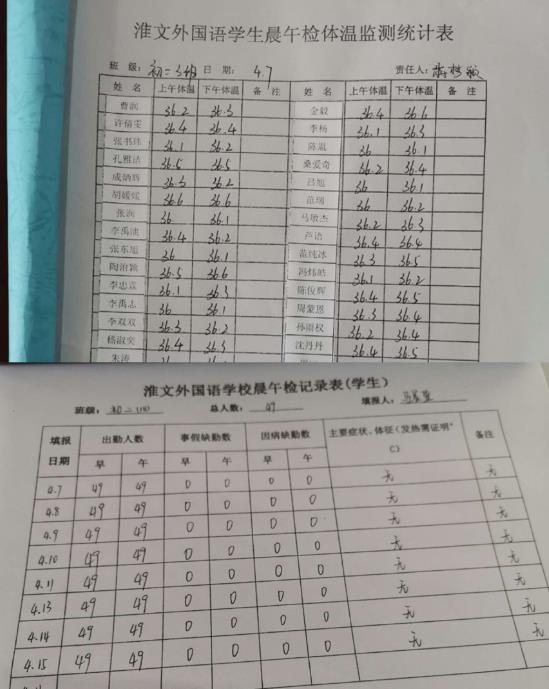 淮文外国语学生晨午检体温监测统计表
班 级: 初二3班 日 期: 4.7 责任人:
姓 名 上午体温 下午体温 备 注 姓 名 上午体温 下午体温 备 注
曹润 36.2 36.3 金毅 36.4 36.6
许倩雯 36.4 36.4 李杨 36.1 36.3
张书玮 36.1 36.2 陈胤 36 36.1
孔雅洁 36.5 36.5 桑爱奇 36.2 36.4
成炳辉 36.3 36.2 吕旭 36 36.1
胡媛媛 36.6 36.6 苗瑞 36 36.2
张润 36 36.1 马敏杰 36.2 36.3
李禹池 36.4 36.2 芦语 36.4 36.4
张东旭 36 36.1 苗纯冰 36.3 36.5
陶治颖 36.5 36.6 冯炜皓 36.1 36.2
李忠霖 36.1 36.3 陈俊辉 36.4 36.5
李禹志 36 36.1 周蒙恩 36.3 36.4
李双双 36.3 36.2 孙雨权 36.2 36.4
嵇淑奕 36.4 36.3 沈丹丹 36.4 36.5
朱涛
淮文外国语学校晨午检记录表(学生)
班级: 初二 总人数: 49 填报人:
填报日期 出勤人数 事假缺勤数 因病缺勤数 主要症状、体征(发热需证明℃) 备注
早 午 早 午 早 午
4.7 49 49 0 0 0 0 无 无
4.8 49 49 0 0 0 0 无 无
4.9 49 49 0 0 0 0 无 无
4.10 49 49 0 0 0 0 无 无
4.11 49 49 0 0 0 0 无 无
4.13 49 49 0 0 0 0 无 无
4.14 49 49 0 0 0 0 无 无
4.15 49 49 0 0 0 0 无 无